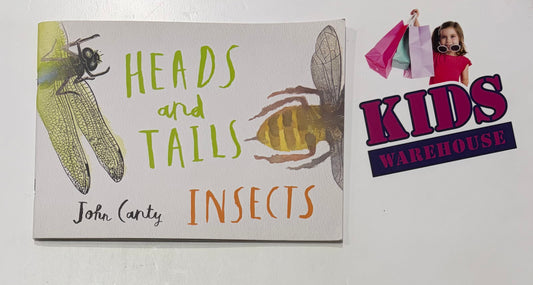 HEADS
and
TAILS
John Canty
INSECTS
KIDS
WAREHOUSE